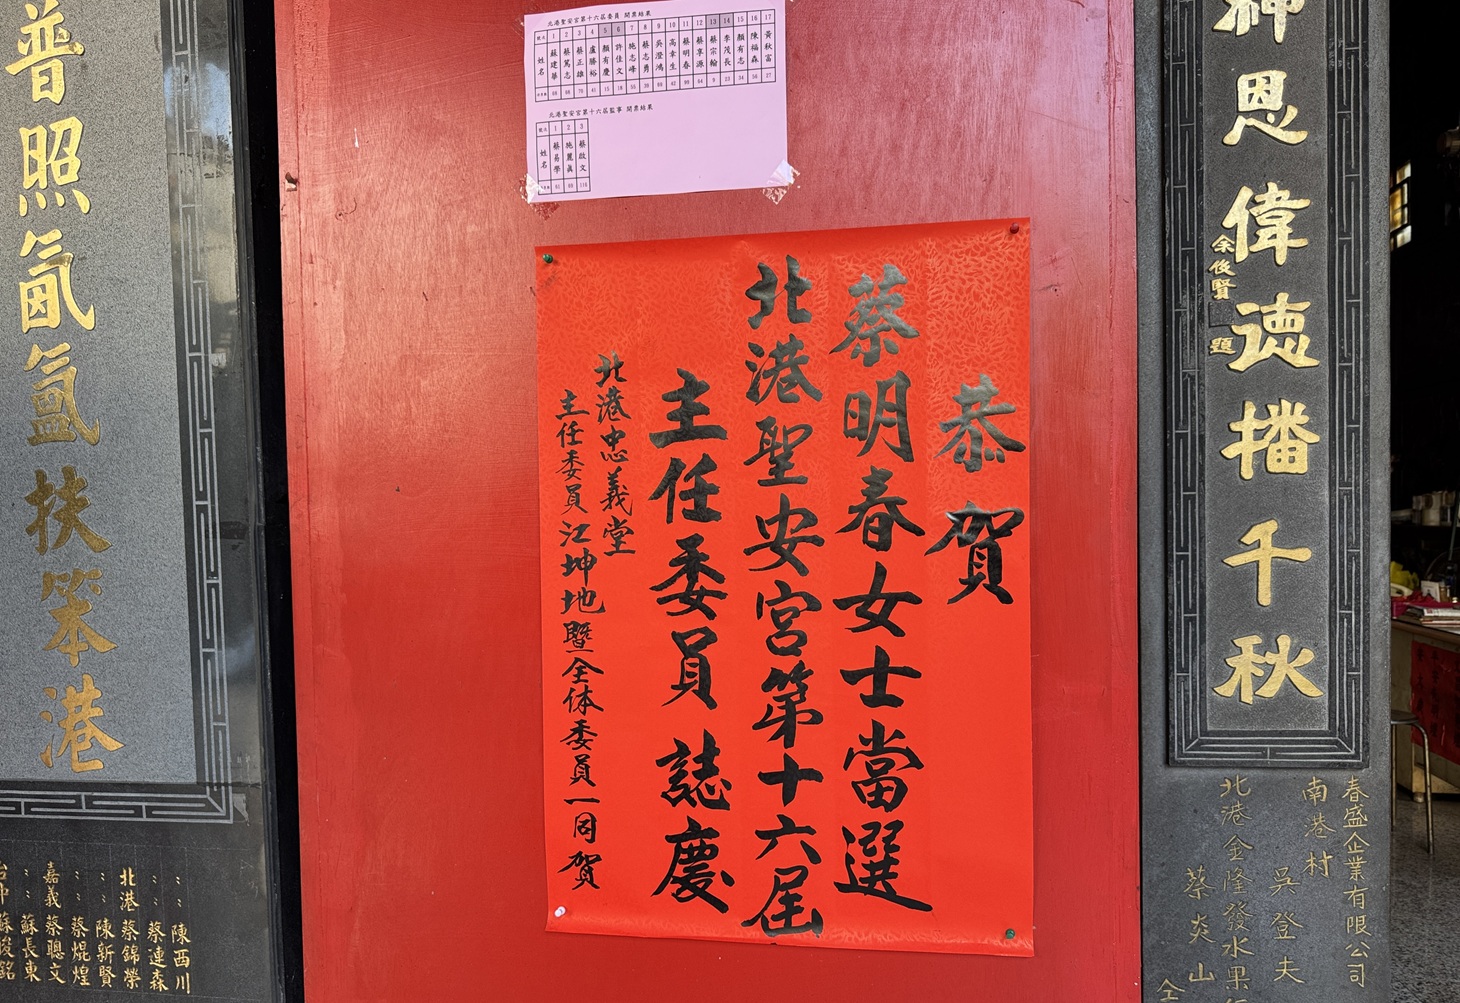 北港聖安宮第十六屆委員 開票結果
號次 1 2 3 4 5 6 7 8 9 10 11 12 13 14 15 16 17
姓名 蘇建華 蔡篤志 蔡正雄 盧勝裕 顏有慶 許佳文 施志峰 蔡志勇 吳澄鴻 高幸生 蔡明春 蔡享源 蔡宗翰 李茂長 顏有志 陳福森 黃秋富
北港聖安宮第十六屆監事 開票結果
號次 1 2 3
姓名 蔡易學 施麗真 蔡啟文
恭賀
蔡明春女士當選
北港聖安宮第十六屆
主任委員 誌慶
北港忠義堂
主任委員江坤地暨全体委員一同賀
神恩偉德播千秋
余俊賢 題
普照氤氳扶笨港
春盛企業有限公司
南巷村 吳登夫
北港金隆發水果
蔡炎山
陳西川
蔡連森
陳新賢
北港 蔡錦榮
蔡焜煌
嘉義 蔡聰文
蘇長東
台中 蘇峻銘